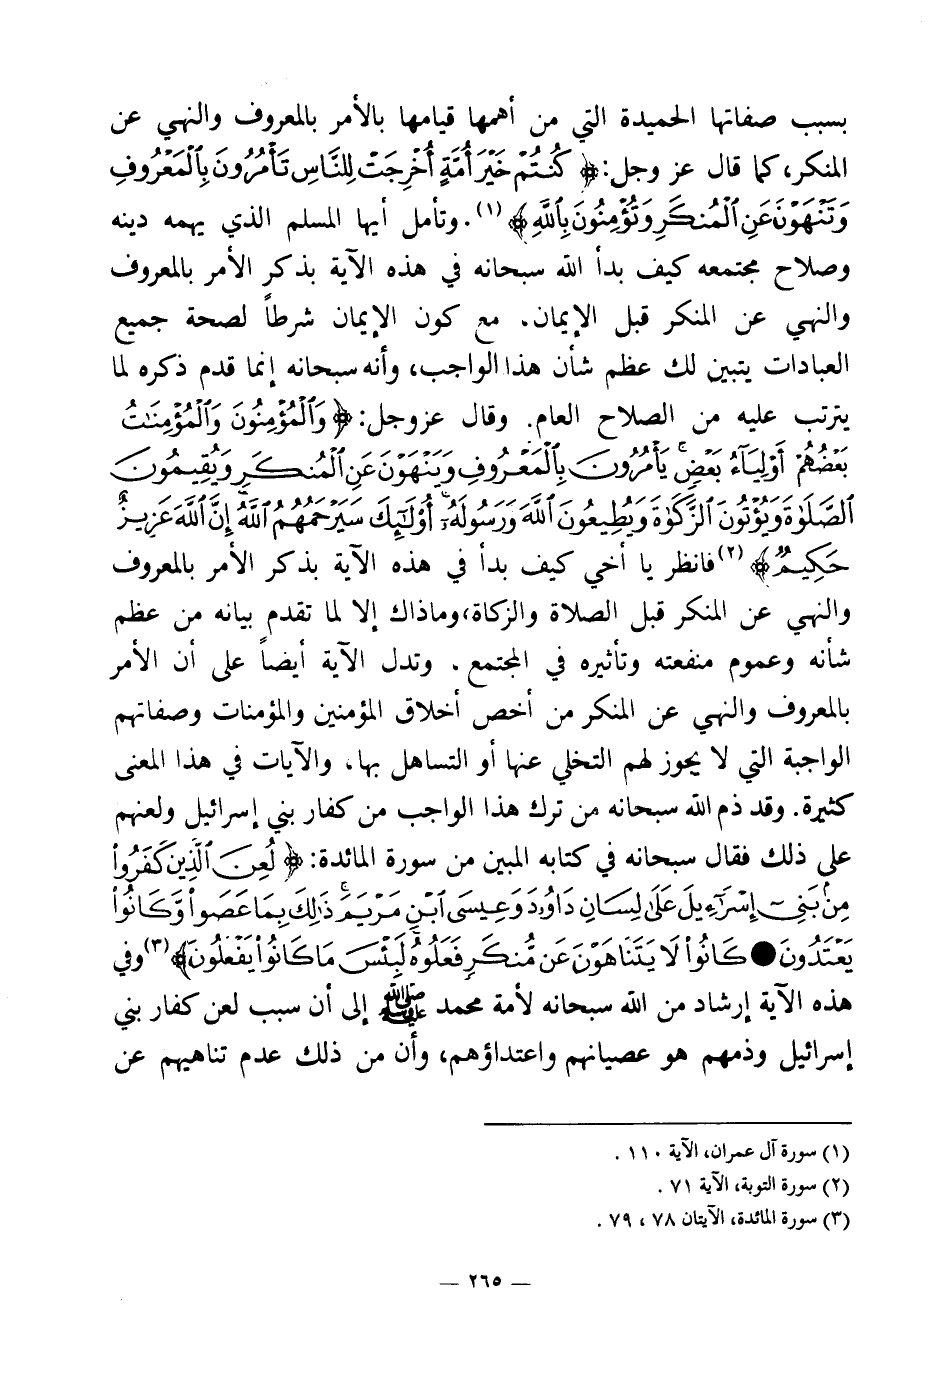 بسبب صفاتها الحميدة التي من أهمها قيامها بالأمر بالمعروف والنهي عن
المنكر، كما قال عز وجل: ﴿ كُنتُمْ خَيْرَ أُمَّةٍ أُخْرِجَتْ لِلنَّاسِ تَأْمُرُونَ بِالْمَعْرُوفِ
وَتَنْهَوْنَ عَنِ الْمُنكَرِ وَتُؤْمِنُونَ بِاللَّهِ ﴾ (١). وتأمل أيها المسلم الذي يهمه دينه
وصلاح مجتمعه كيف بدأ الله سبحانه في هذه الآية بذكر الأمر بالمعروف
والنهي عن المنكر قبل الإيمان. مع كون الإيمان شرطاً لصحة جميع
العبادات يتبين لك عظم شأن هذا الواجب، وأنه سبحانه إنما قدم ذكره لما
يترتب عليه من الصلاح العام. وقال عزوجل: ﴿ وَالْمُؤْمِنُونَ وَالْمُؤْمِنَٰتُ
بَعْضُهُمْ أَوْلِيَآءُ بَعْضٍ ۚ يَأْمُرُونَ بِالْمَعْرُوفِ وَيَنْهَوْنَ عَنِ الْمُنكَرِ وَيُقِيمُونَ
الصَّلَوٰةَ وَيُؤْتُونَ الزَّكَوٰةَ وَيُطِيعُونَ اللَّهَ وَرَسُولَهُۥٓ ۚ أُوْلَٰٓئِكَ سَيَرْحَمُهُمُ اللَّهُ ۗ إِنَّ اللَّهَ عَزِيزٌ
حَكِيمٌ ﴾ (٢) فانظر يا أخي كيف بدأ في هذه الآية بذكر الأمر بالمعروف
والنهي عن المنكر قبل الصلاة والزكاة، وماذاك إلا لما تقدم بيانه من عظم
شأنه وعموم منفعته وتأثيره في المجتمع. وتدل الآية أيضاً على أن الأمر
بالمعروف والنهي عن المنكر من أخص أخلاق المؤمنين والمؤمنات وصفاتهم
الواجبة التي لا يجوز لهم التخلي عنها أو التساهل بها. والآيات في هذا المعنى
كثيرة. وقد ذم الله سبحانه من ترك هذا الواجب من كفار بني إسرائيل ولعنهم
على ذلك فقال سبحانه في كتابه المبين من سورة المائدة: ﴿ لُعِنَ الَّذِينَ كَفَرُواْ
مِنۢ بَنِىٓ إِسْرَٰٓءِيلَ عَلَىٰ لِسَانِ دَاوُۥدَ وَعِيسَى ابْنِ مَرْيَمَ ۚ ذَٰلِكَ بِمَا عَصَواْ وَّكَانُواْ
يَعْتَدُونَ ● كَانُواْ لَا يَتَنَاهَوْنَ عَن مُّنكَرٍ فَعَلُوهُ ۚ لَبِئْسَ مَا كَانُواْ يَفْعَلُونَ ﴾ (٣) وفي
هذه الآية إرشاد من الله سبحانه لأمة محمد ﷺ إلى أن سبب لعن كفار بني
إسرائيل وذمهم هو عصيانهم واعتداؤهم، وأن من ذلك عدم تناهيهم عن
(١) سورة آل عمران، الآية ١١٠ .
(٢) سورة التوبة، الآية ٧١ .
(٣) سورة المائدة، الآيتان ٧٨ ، ٧٩ .
— ٢٦٥ —